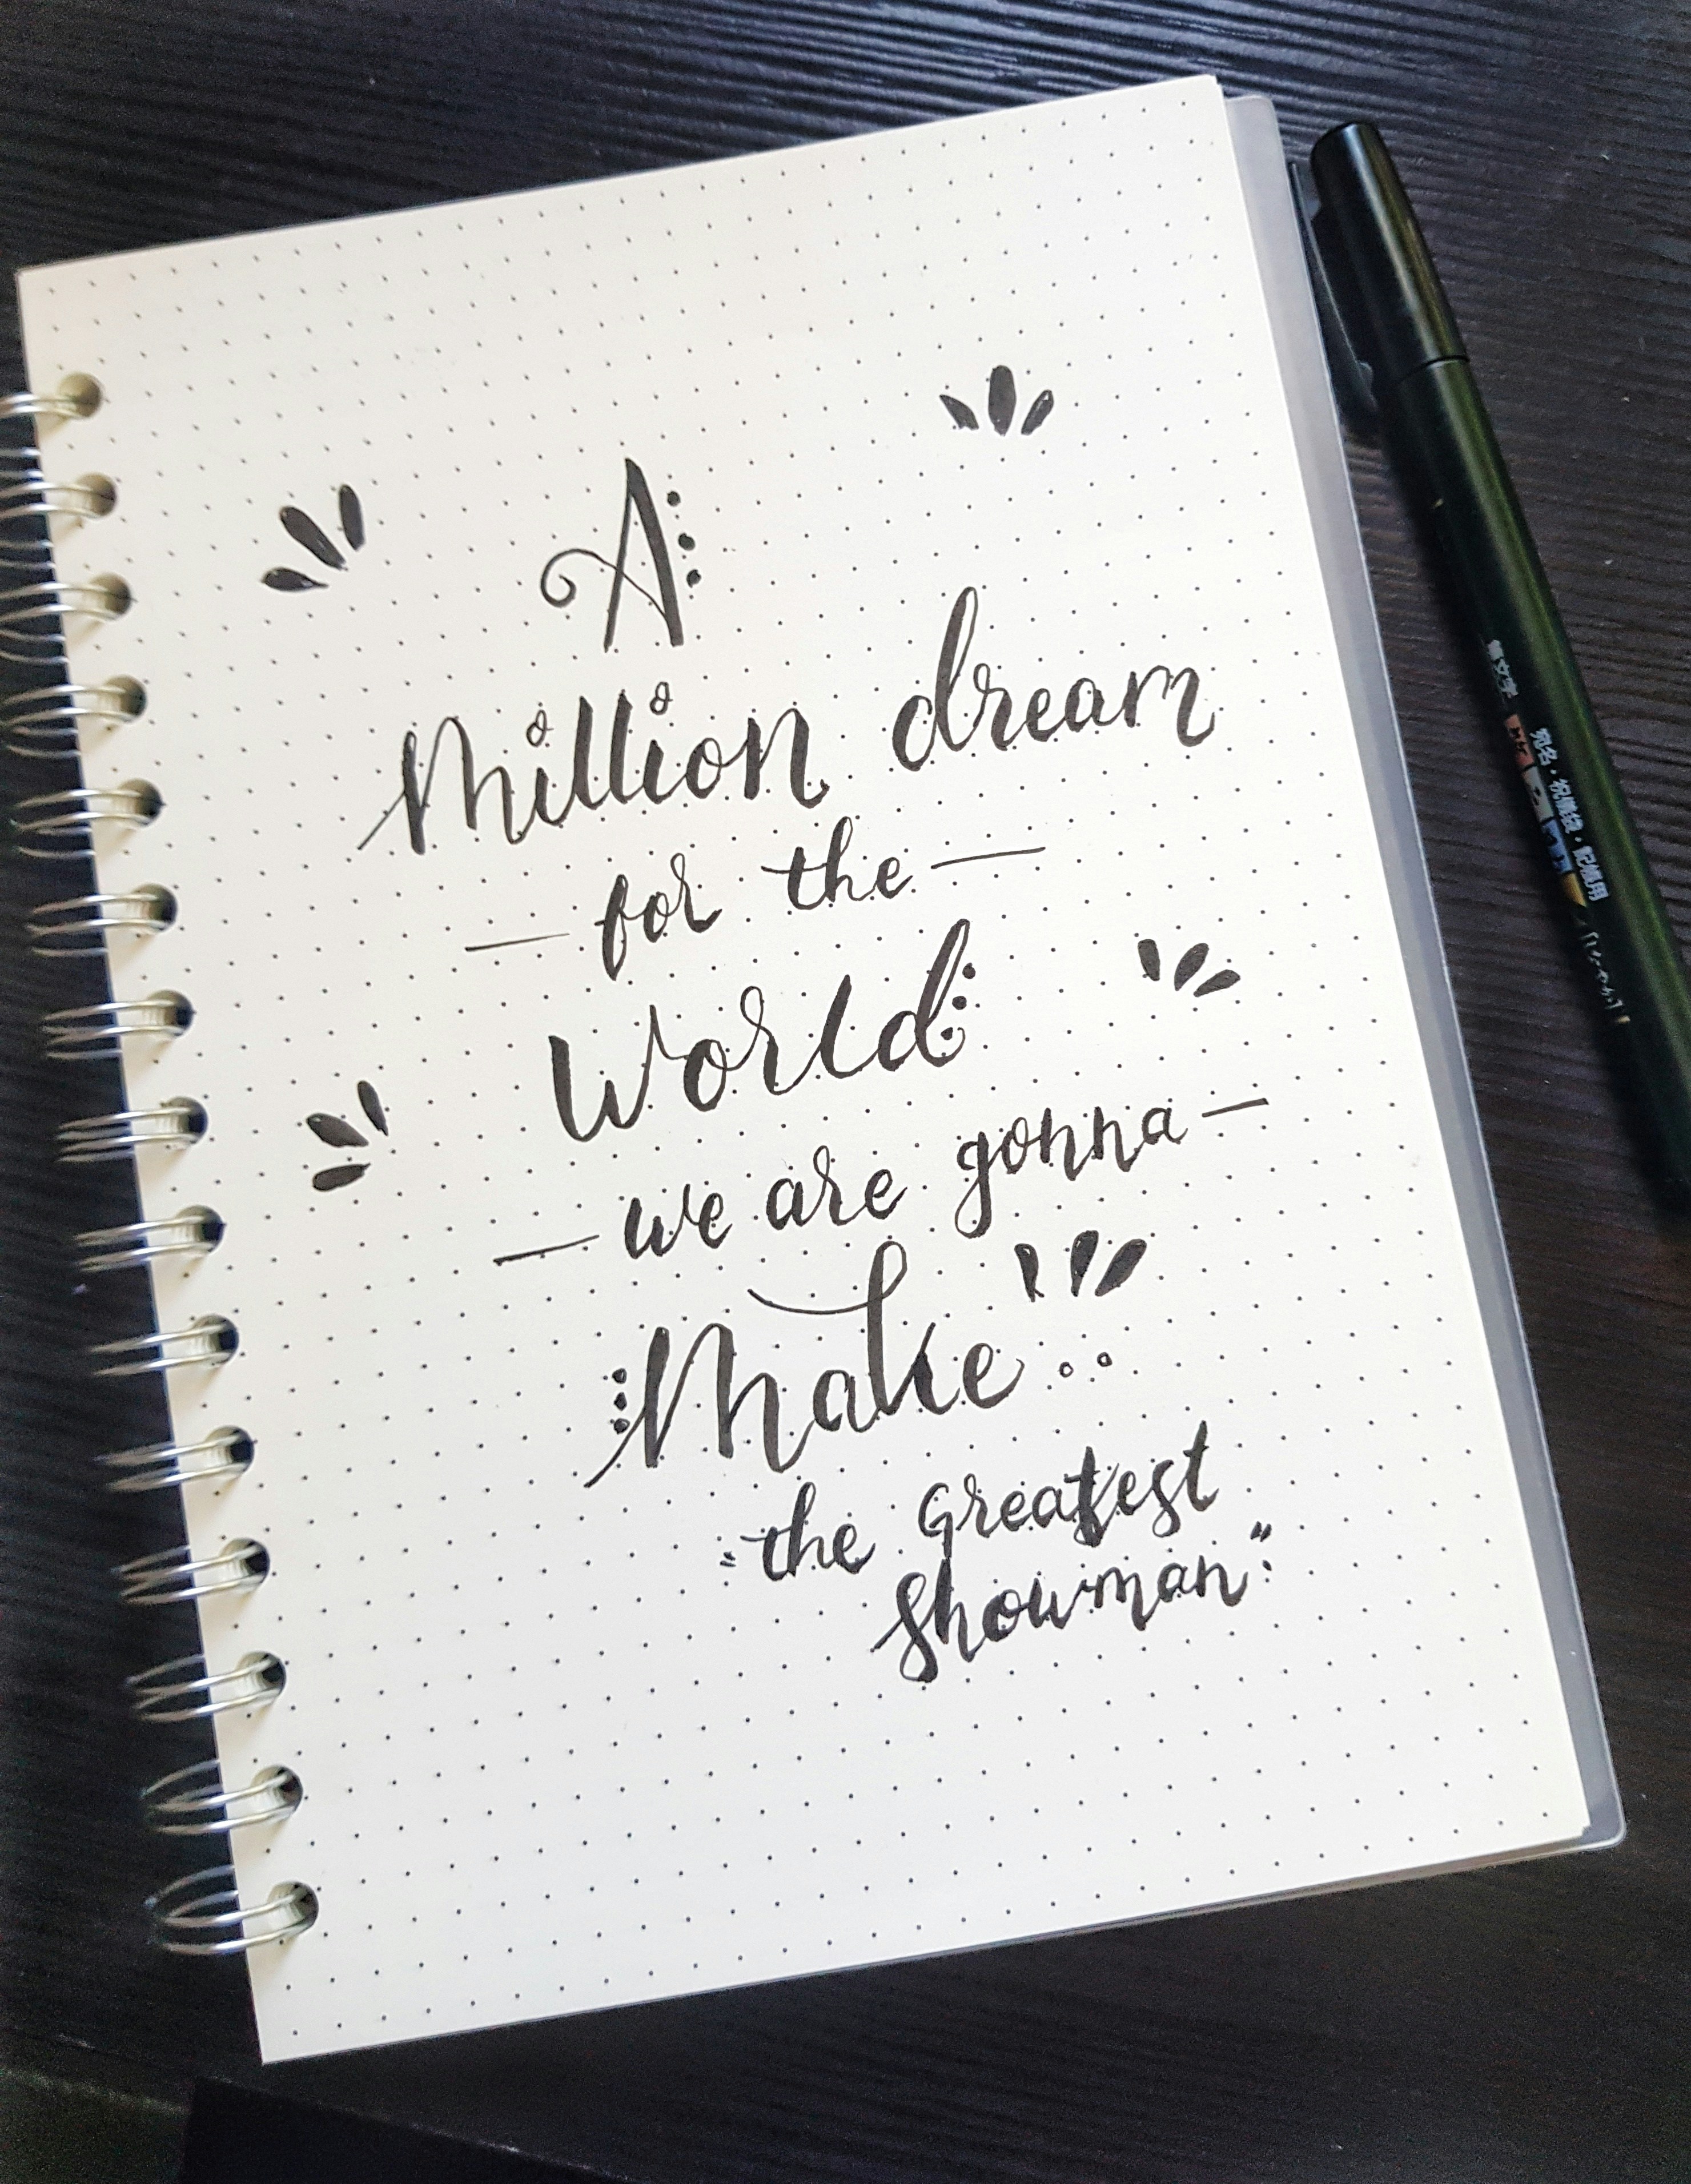 A
Million dream
— for the —
World
— we are gonna —
Make ...
"the Greatest
Showman"
筆文字
宛名・祝儀袋・記帳用